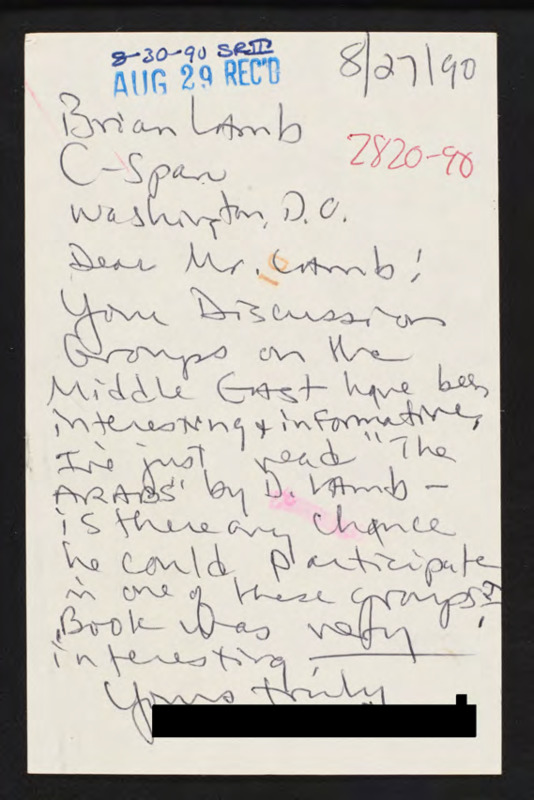 8-30-90 SRII
AUG 29 REC'D
8/27/90
2820-90
Brian Lamb
C-Span
Washington, D.C.
Dear Mr. Lamb!
Your Discussion
Groups on the
Middle East have been
interesting & informative,
I've just read "The
ARABS" by D. Lamb -
is there any chance
he could participate
in one of these groups?
Book was very
interesting
Yours truly